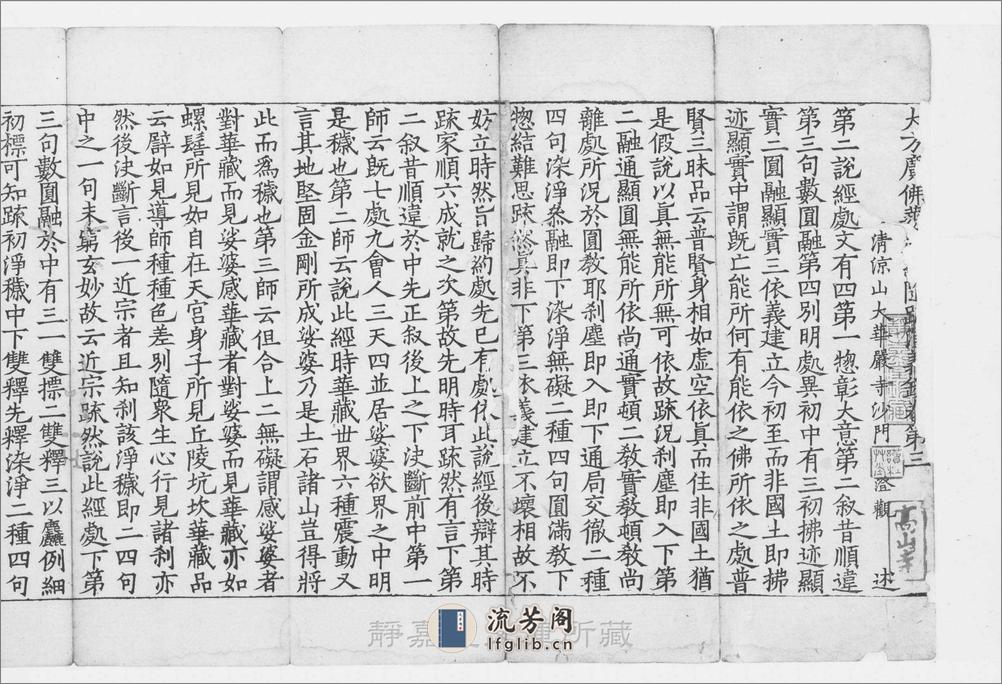 大方廣佛華 隨疏演義鈔卷第三
清涼山大華嚴寺沙門 澄觀 述
第二說經處文有四第一惣彰大意第二叙昔順違
第三句數圓融第四別明處異初中有三初拂迹顯
實二圓融顯實三依義建立今初至而非國土即拂
迹顯實中謂旣亡能所何有能依之佛所依之處普
賢三昧品云普賢身相如虛空依真而住非國土猶
是假說以真無能所無可依故疎況刹塵即入下第
二融通顯圓無能所依尚通實頓二教實教頓教尚
離處所況於圓教耶刹塵即入即下通局交徹二種
四句染淨叅融即下染淨無礙二種四句圓滿教下
惣結難思疎 真非下下第三依義建立不壞相故不
妨立時然旨歸約處先已有處依此說經後辯其時
疎家順六成就之次第故先明時耳疎然有言下第
二叙昔順違於中先正叙後上之下決斷前中第一
師云旣七處九會人三天四並居娑婆欲界之中明
是穢也第二師云說此經時華藏世界六種震動又
言其地堅固金剛所成娑婆乃是土石諸山豈得將
此而爲穢也第三師云但合上二無礙謂感娑婆者
對華藏而見娑婆感華藏者對娑婆而見華藏亦如
螺髻所見如自在天宮身子所見丘陵坑坎華藏品
云譬如見導師種種色差別隨衆生心行見諸刹亦
然後決斷言後一近宗者且知刹該淨穢即二四句
中之一句未窮玄妙故云近宗疎然說此經處下第
三句數圓融於中有三一雙標二雙釋三以麤例細
初標可知疎初淨穢中下雙釋先釋染淨二種四句
高山寺
靜嘉 所藏
流芳阁
lfglib.cn